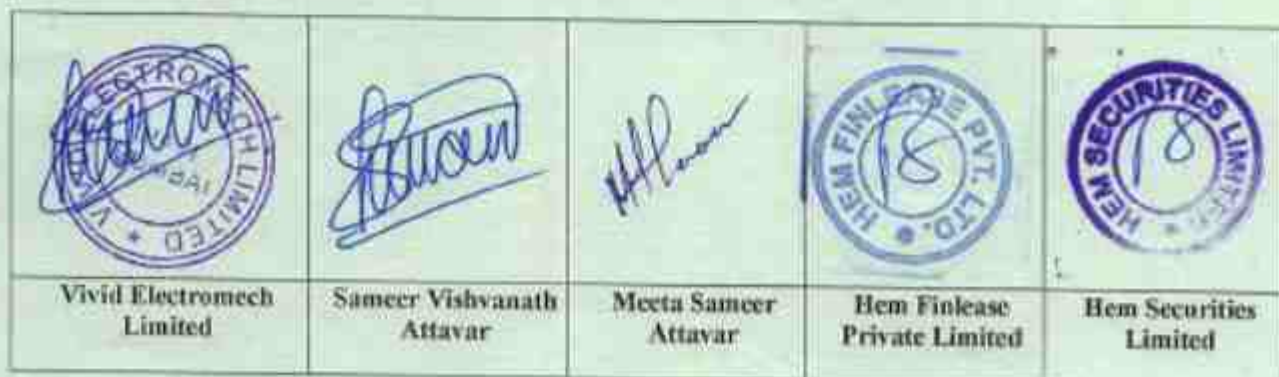 ELECTROMECH LIMITED
MUMBAI
HEM FINLEASE PVT. LTD.
HEM SECURITIES LIMITED
Vivid Electromech
Limited
Sameer Vishvanath
Attavar
Meeta Sameer
Attavar
Hem Finlease
Private Limited
Hem Securities
Limited